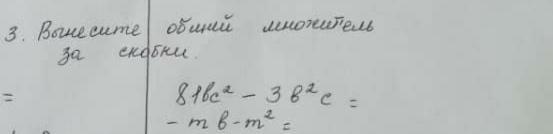 3. Вынесите общий множитель
за скобки.
= 81bc² - 3b²c =
- mb - m² =